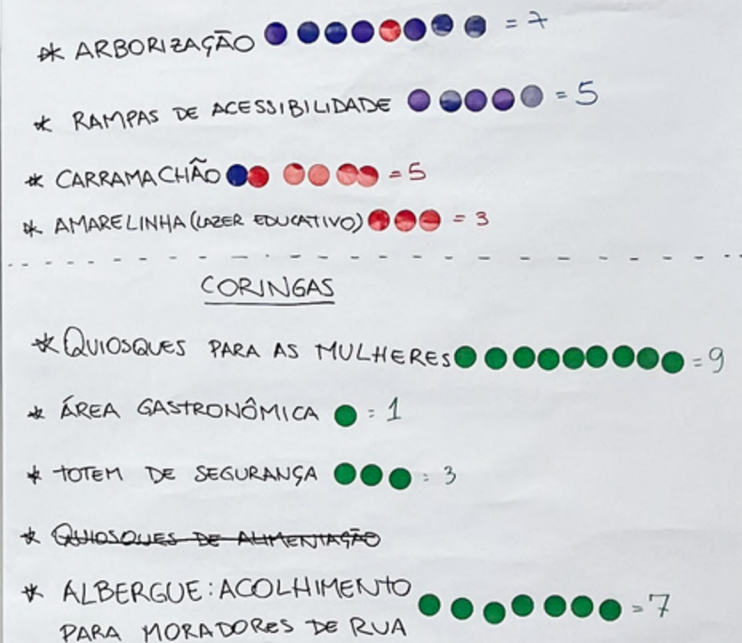 * ARBORIZAÇÃO = 7
* RAMPAS DE ACESSIBILIDADE = 5
* CARRAMACHÃO = 5
* AMARELINHA (LAZER EDUCATIVO) = 3
CORINGAS
* QUIOSQUES PARA AS MULHERES = 9
* ÁREA GASTRONÔMICA = 1
* TOTEM DE SEGURANÇA = 3
* QUIOSQUES DE ALIMENTAÇÃO
* ALBERGUE: ACOLHIMENTO = 7
PARA MORADORES DE RUA